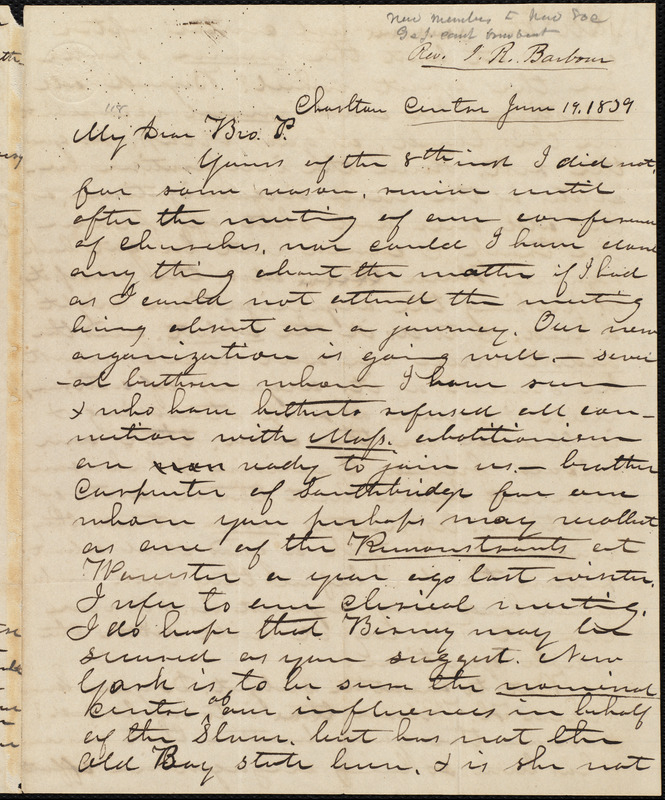 New members to New Soc
Rev. I. R. Barbour
Charlton Centre June 19. 1839
My Dear Bro. P.
Yours of the 8th inst I did not,
for some reason, receive until
after the meeting of our conference
of churches, nor could I have done
any thing about the matter if I had
as I could not attend the meeting
being absent on a journey. Our new
organization is going well. — sever
-al brethren whom I have seen
& who have hitherto refused all con-
nection with Mass. abolitionism
are now ready to join us. — brother
Carpenter of Southbridge for one
whom you perhaps may recollect
as one of the Remonstrants at
Worcester a year ago last winter.
I refer to our clerical meeting.
I do hope that Birney may be
secured as you suggest. New
York is to be sure the nominal
centre of our influences in behalf
of the Slave. but has not the
Old Bay state been, & is she not